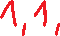 1, 1,